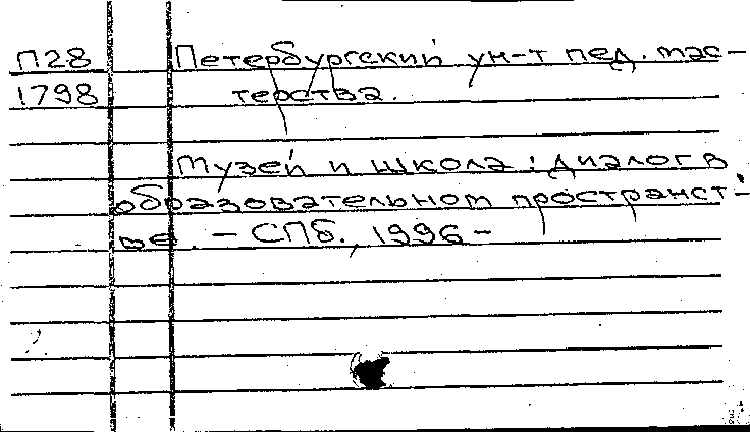 П28 Петербургский ун-т пед. мас-
1798 терства.
Музей и школа: диалог в
образовательном пространст-
ве. — СПб., 1996 –